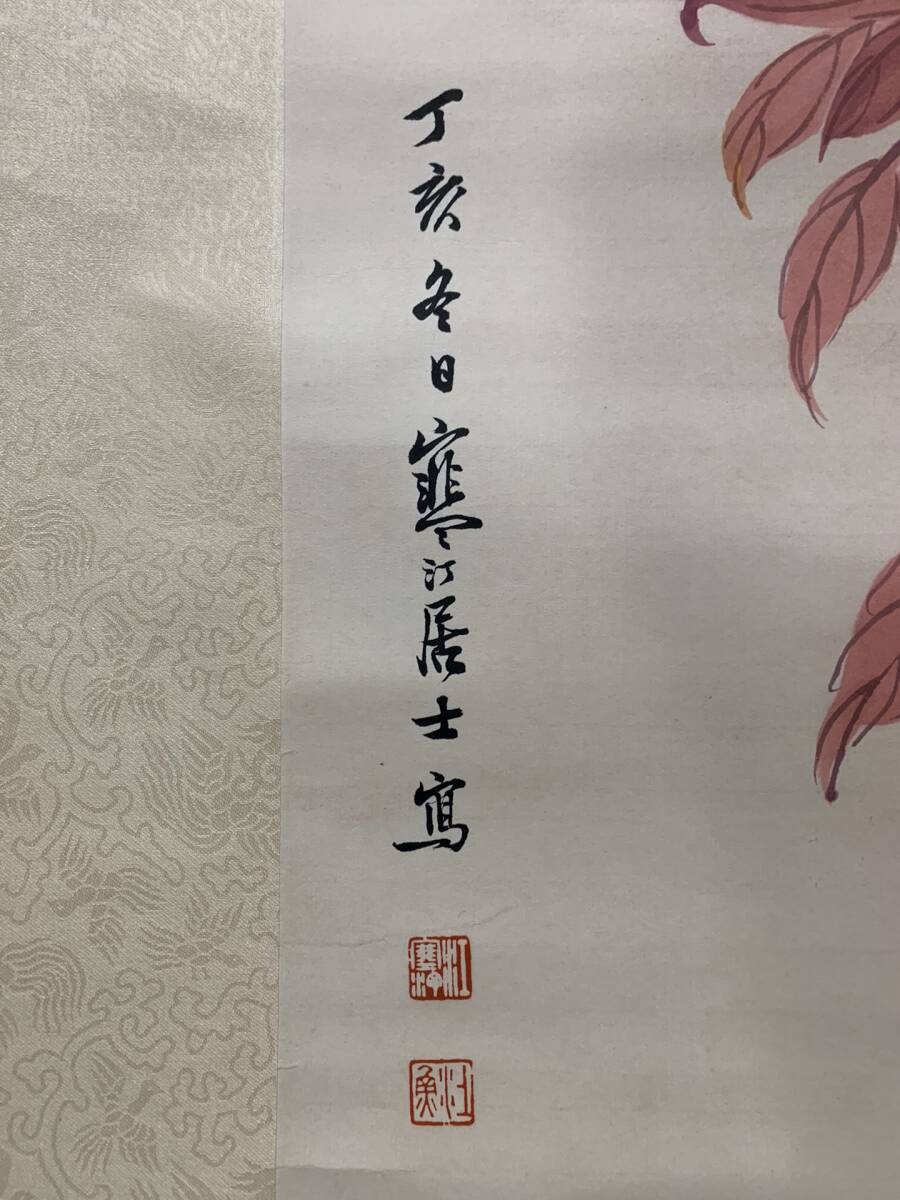 丁亥冬日寒汀居士寫
江寒汀